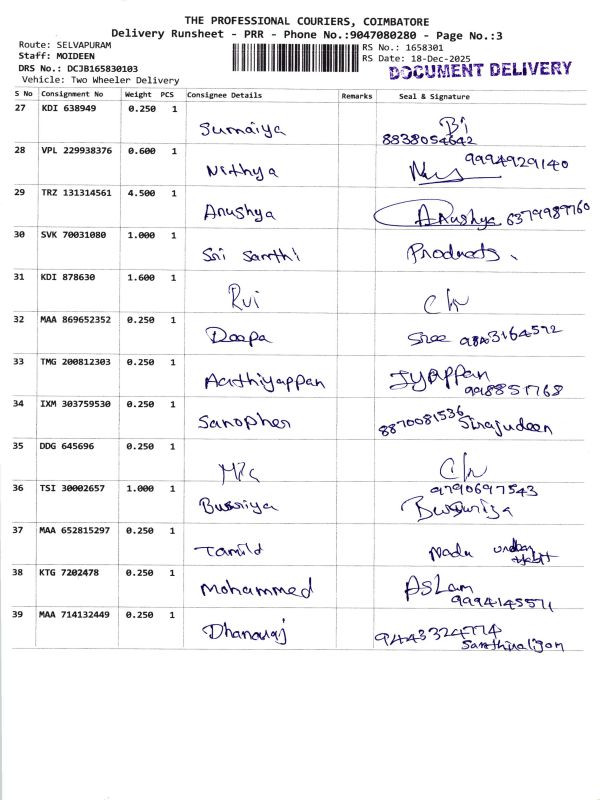 THE PROFESSIONAL COURIERS, COIMBATORE
Delivery Runsheet - PRR - Phone No.:9047080280 - Page No.:3
Route: SELVAPURAM
Staff: MOIDEEN
DRS No.: DCJB165830103
Vehicle: Two Wheeler Delivery
RS No.: 1658301
RS Date: 18-Dec-2025
DOCUMENT DELIVERY
S No Consignment No Weight PCS Consignee Details Remarks Seal & Signature
27 KDI 638949 0.250 1
Sumaiya Bi
8838054642
28 VPL 229938376 0.600 1
Nithya 9994929140
29 TRZ 131314561 4.500 1
Anushya Anushya 6379989760
30 SVK 70031080 1.000 1
Sri Santhi Products.
31 KDI 878630 1.600 1
Rvi
32 MAA 869652352 0.250 1
Deepa Sree 9843164572
33 TMG 200812303 0.250 1
Aathiyappan Iyappan
9988551768
34 IXM 303759530 0.250 1
Sanopher 8870081536 Sirajudeen
35 DDG 645696 0.250 1
36 TSI 30002657 1.000 1
9790697543
37 MAA 652815297 0.250 1
Tamild Nadu
38 KTG 7202478 0.250 1
Mohammed ASLam
9994145571
39 MAA 714132449 0.250 1
Dhanaraj 9443324774